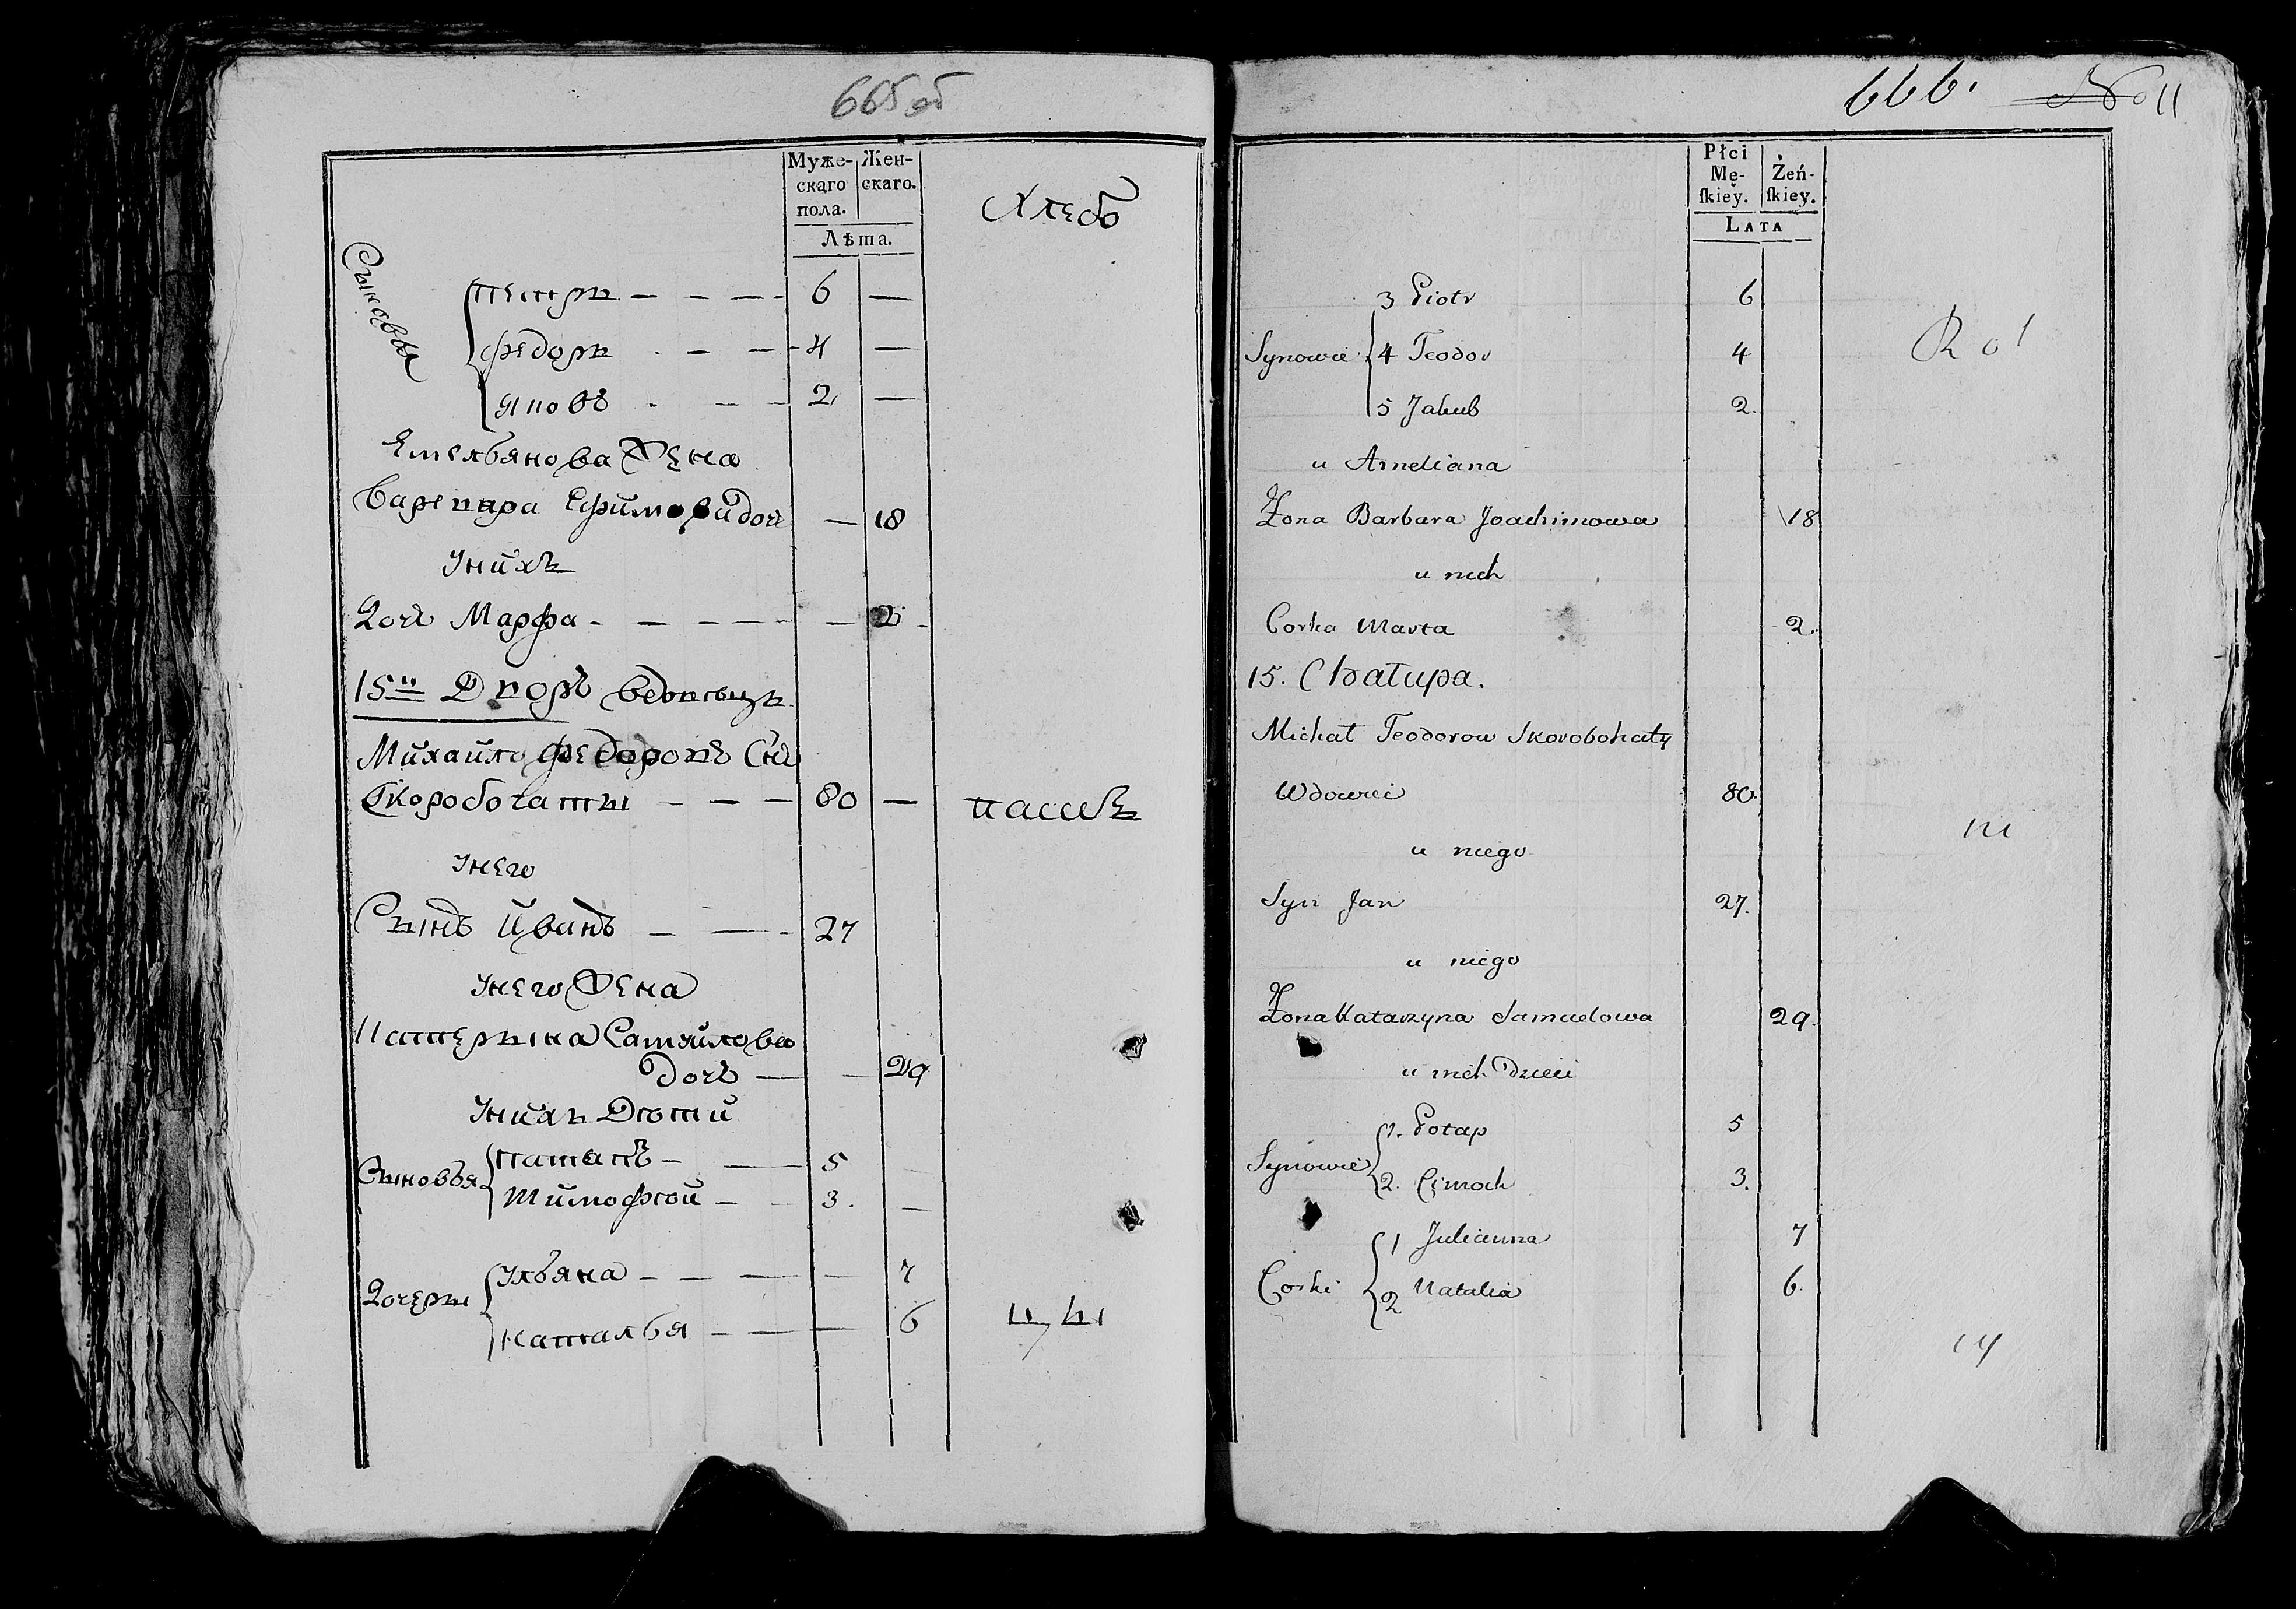 665 об
Муже-
скаго
пола.
Жен-
скаго.
Лѣта.
Хлебо
Сыновья
Петръ — — — 6 —
Федоръ — — 4 —
Яковъ — — 2 —
Емельянова Жена
Варвара Ефимова доч — 18
У нихъ
Доч Марфа — — — — — 2
15й Дворъ вдовецъ
Михайло Федоровъ Снъ
Скоробогаты — — — 80 — пашъ
У него
Сынъ Иванъ — — 27
У него Жена
Катерына Самуйлова
дочь — — 29
У нихъ Дѣти
Сыновья
Патапъ — — 5
Тимофѣй — — 3.
Дочеры
Ульяна — — — — 7
Наталья — — — 6
666. No 11
Płci
Mę-
ſkiey.
Żeń-
ſkiey.
LATA
3 Piotr 6
Synowie 4 Teodor 4 Rol
5 Jakub 2.
u Ameliana
Żona Barbara Joachimowa 18
u nich
Corka Marta 2.
15. Chatupa.
Michał Teodorow Skorobohaty
Wdowiec 80.
u niego
Syn Jan 27.
u niego
Żona Katarzyna Samuelowa 29.
u nich Dzieci
Synowie
1. Potap 5
2. Cimoch 3.
Corki
1 Julianna 7
2 Natalia 6.